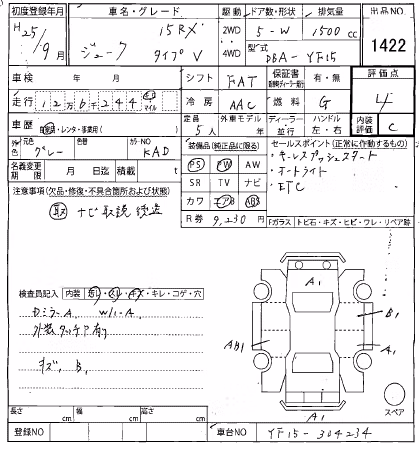 初度登録年月 車名・グレード 駆動 ドア数・形状 排気量 出品NO
H25/9月 ジューク 15RX タイプV 2WD 4WD 5-W 1500cc 1422
型式 DBA-YF15
車検 年 月 シフト FAT 保証書 有・無 評価点
走行 12万6千244 km マイル 冷房 AAC 燃料 G 4
車歴 自家用・レンタ・事業用( ) 定員 5人 外車モデル 年 ディーラー 並行 ハンドル 左・右 内装評価 C
外色 元色 グレー カラーNO KAD 装備品(純正品に限る) セールスポイント(正常に作動するもの)
名義変更期限 月 日迄 積載 t PS PW AW ・キーレスプッシュスタート
注意事項(欠品・修復・不具合箇所および状態) SR TV ナビ ・オートライト
取 ナビ取説 後送 カワ エアB ABS ・ETC
R券 9,230円 Fガラス トビ石・キズ・ヒビ・ワレ・リペア跡
検査員記入 内装 汚レ・スレ・キズ・キレ・コゲ・穴
A1
B1
AB1
A1
外装タッチ有り
キズ、B、
A1
スペア
長さ cm 幅 cm 高さ cm
登録NO 車台NO YF15-304234